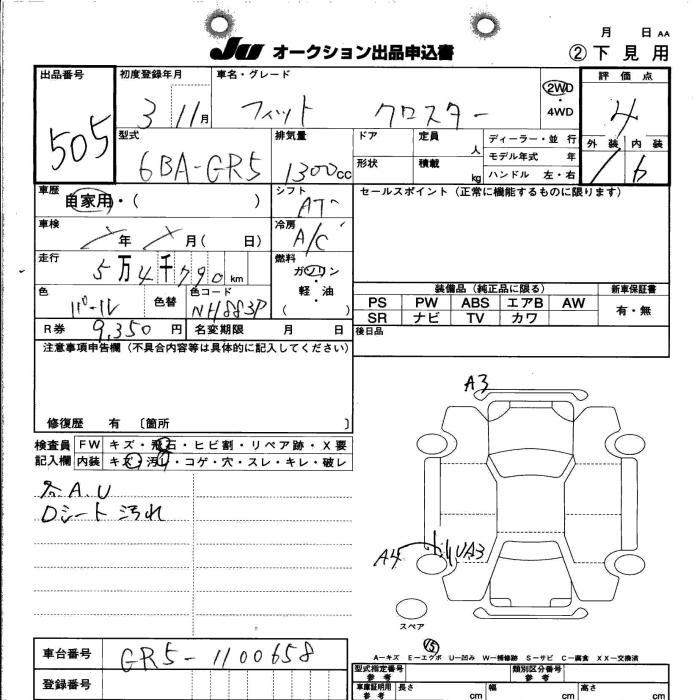 月 日 AA
JU オークション出品申込書 ② 下見用
出品番号 505
初度登録年月 3 11月
車名・グレード フィット クロスター
2WD・4WD
評価点 4
外装 内装
型式 6BA-GR5
排気量 1300cc
ドア
定員 人
ディーラー・並行
モデル年式 年
形状
積載 kg
ハンドル 左・右
車歴 自家用・( )
シフト AT
セールスポイント (正常に機能するものに限ります)
車検 年 月( 日)
冷房 A/C
走行 5万4千790km
燃料 ガソリン・軽・油 ( )
色 パール
色替
色コード NH883P
装備品 (純正品に限る) 新車保証書
PS PW ABS エアB AW 有・無
SR ナビ TV カワ
R券 9,350円
名変期限 月 日
後日品
注意事項申告欄 (不具合内容等は具体的に記入してください)
修復歴 有 〔箇所 〕
検査員記入欄
FW キズ・飛石・ヒビ割・リペア跡・X要
内装 キズ・汚れ・コゲ・穴・スレ・キレ・破レ
各A.U
Dシート汚れ
A3
A4
UA3
スペア
A−キズ E−エクボ U−凹み W−補修跡 S−サビ C−腐食 XX−交換済
車台番号 GR5-1100658
登録番号
型式指定番号 参考
類別区分番号 参考
車庫証明用 参考
長さ cm
幅 cm
高さ cm